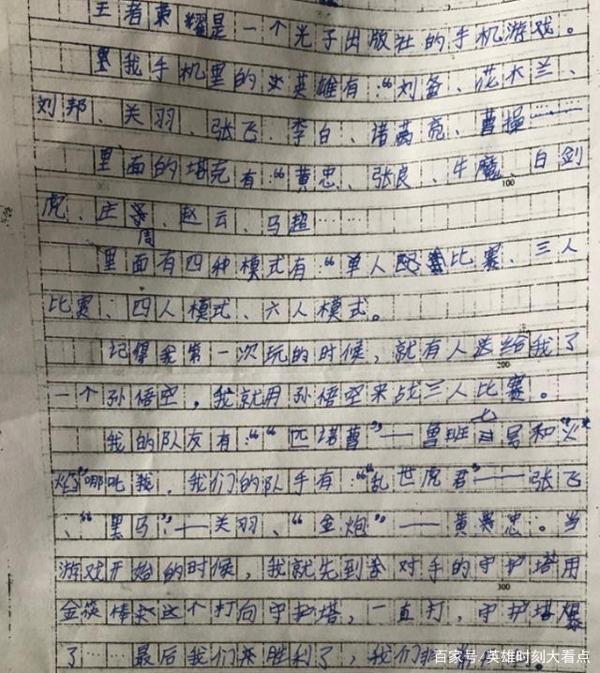 王者荣耀是一个光子出版社的手机游戏。
我手机里的英雄有:“刘备、花木兰、
刘邦、关羽、张飞、李白、诸葛亮、曹操……
里面的坦克有:“黄忠、张良、牛魔、白剑
100
虎、庄周、赵云、马超……
里面有四种模式有:“单人比赛、三人
比赛、四人模式、六人模式。
记得我第一次玩的时候,就有人送给我了
200
一个孙悟空,我就用孙悟空来战三人比赛。
我的队友有:“匹诺曹”——鲁班七号和“火
焰”哪吒我,我们的队手有:“乱世虎君”——张飞
、“黑马”——关羽、“金炮”——黄忠。当
游戏开始的时候,我就先到对手的守护塔用
300
金筷棒这个打向守护塔,一直打,守护塔爆
了……最后我们胜利了,我们非
百家号/英雄时刻大看点